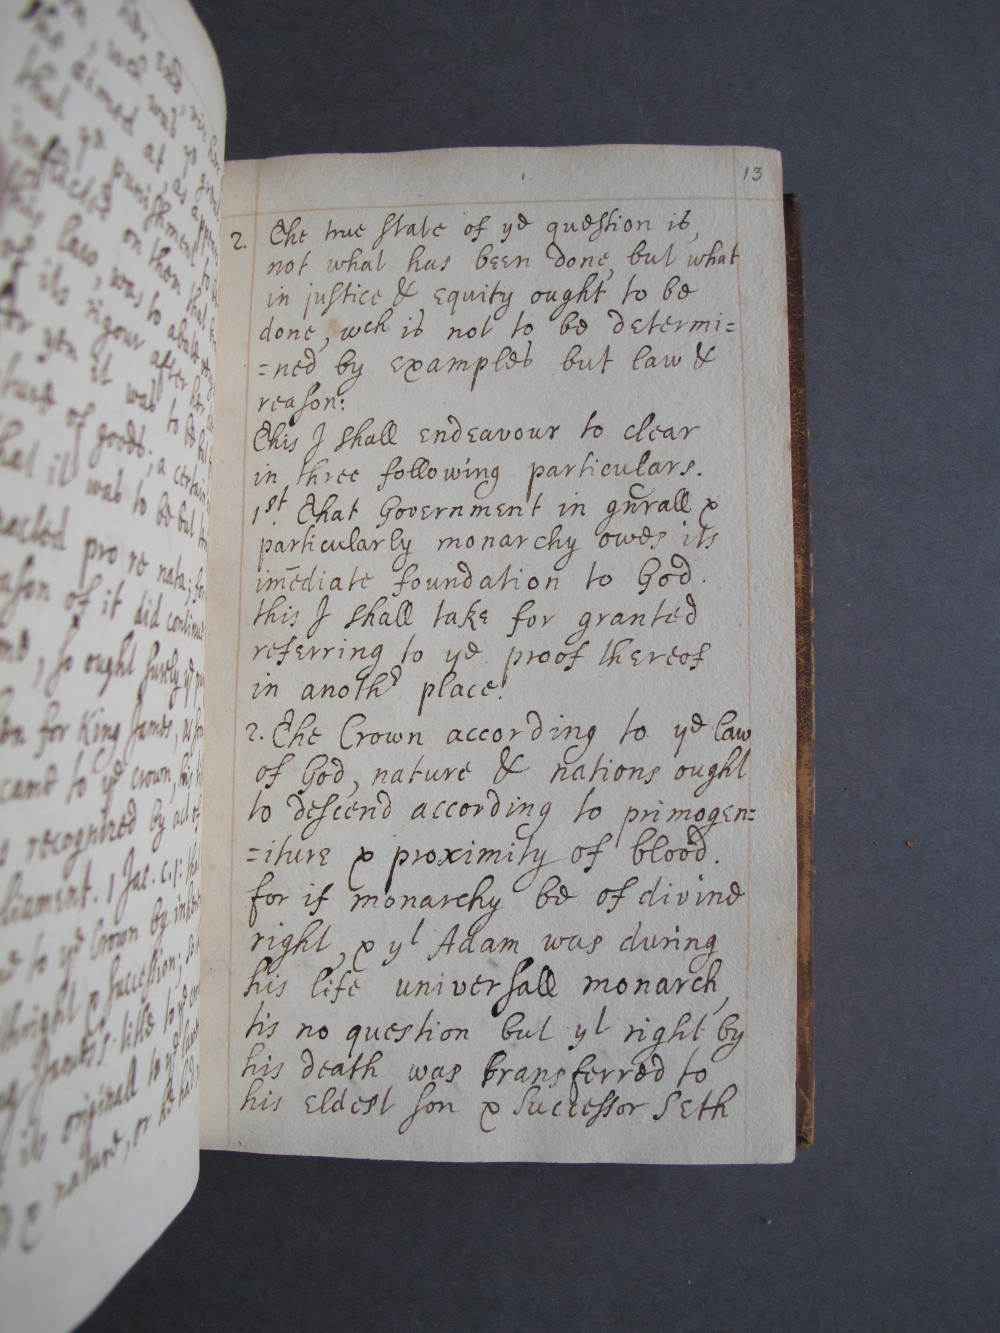 he aimed at, as appears
that ye punishment to be
inflicted on them that
this law, was to abate
of its rigour after her
for yen it was to be but
nature of goods, a certain
that it was to be but
enacted pro re nata; for
reason of it did continue
, so ought surely ye
for King James, as
came to ye crown, his
recognized by act of
liament. 1 Jac. c. 1: that
to ye Crown by inherent
thright & succession; so
James's title to ye
its originall to ye laws
nature, or he had
13
2. The true state of ye question is,
not what has been done, but what
in justice & equity ought to be
done, wch is not to be determi=
=ned by examples but law &
reason:
This I shall endeavour to clear
in three following particulars.
1st. That Government in gn̄rall &
particularly monarchy owes its
im̄ediate foundation to God.
this I shall take for granted
referring to ye proof thereof
in anothr place.
2. The Crown according to ye law
of God, nature & nations ought
to descend according to primogen=
=iture & proximity of blood.
for if monarchy be of divine
right, & yt Adam was during
his life universall monarch,
tis no question but yt right by
his death was transferred to
his eldest son & successor Seth